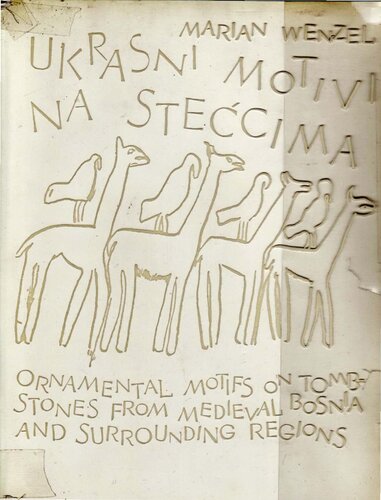 MARIAN WENZEL
UKRASNI MOTIVI
NA STEĆCIMA
ORNAMENTAL MOTIFS ON TOMB-
STONES FROM MEDIEVAL BOSNIA
AND SURROUNDING REGIONS